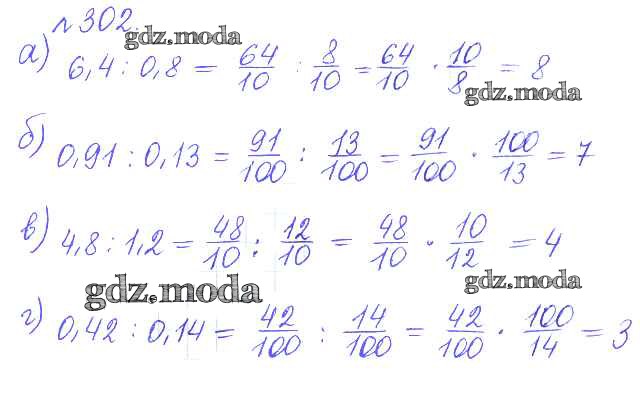 №302.
gdz.moda
а) 6,4 : 0,8 = 64/10 : 8/10 = 64/10 · 10/8 = 8
gdz.moda
б) 0,91 : 0,13 = 91/100 : 13/100 = 91/100 · 100/13 = 7
в) 4,8 : 1,2 = 48/10 : 12/10 = 48/10 · 10/12 = 4
gdz.moda
gdz.moda
г) 0,42 : 0,14 = 42/100 : 14/100 = 42/100 · 100/14 = 3